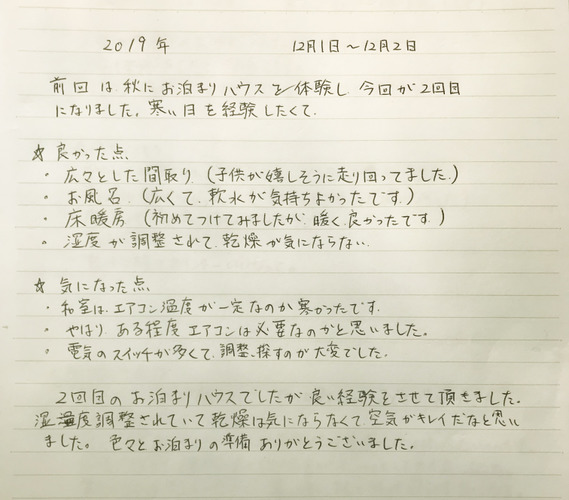 2019年 12月1日～12月2日
前回は、秋にお泊まりハウスを体験し、今回が2回目
になりました。寒い日を経験したくて、
☆ 良かった点
・ 広々とした間取り (子供が嬉しそうに走り回ってました。)
・ お風呂 (広くて、軟水が気持ちよかったです。)
・ 床暖房 (初めてつけてみましたが、暖く、良かったです。)
・ 湿度が調整されて、乾燥が気にならない。
☆ 気になった点
・ 和室は、エアコン温度が一定なのか寒かったです。
・ やはり、ある程度エアコンは必要なのかと思いました。
・ 電気のスイッチが多くて、調整、探すのが大変でした。
2回目のお泊まりハウスでしたが、良い経験をさせて頂きました。
湿度調整されていて乾燥は気にならなくて、空気がキレイだなと思い
ました。色々とお泊まりの準備ありがとうございました。